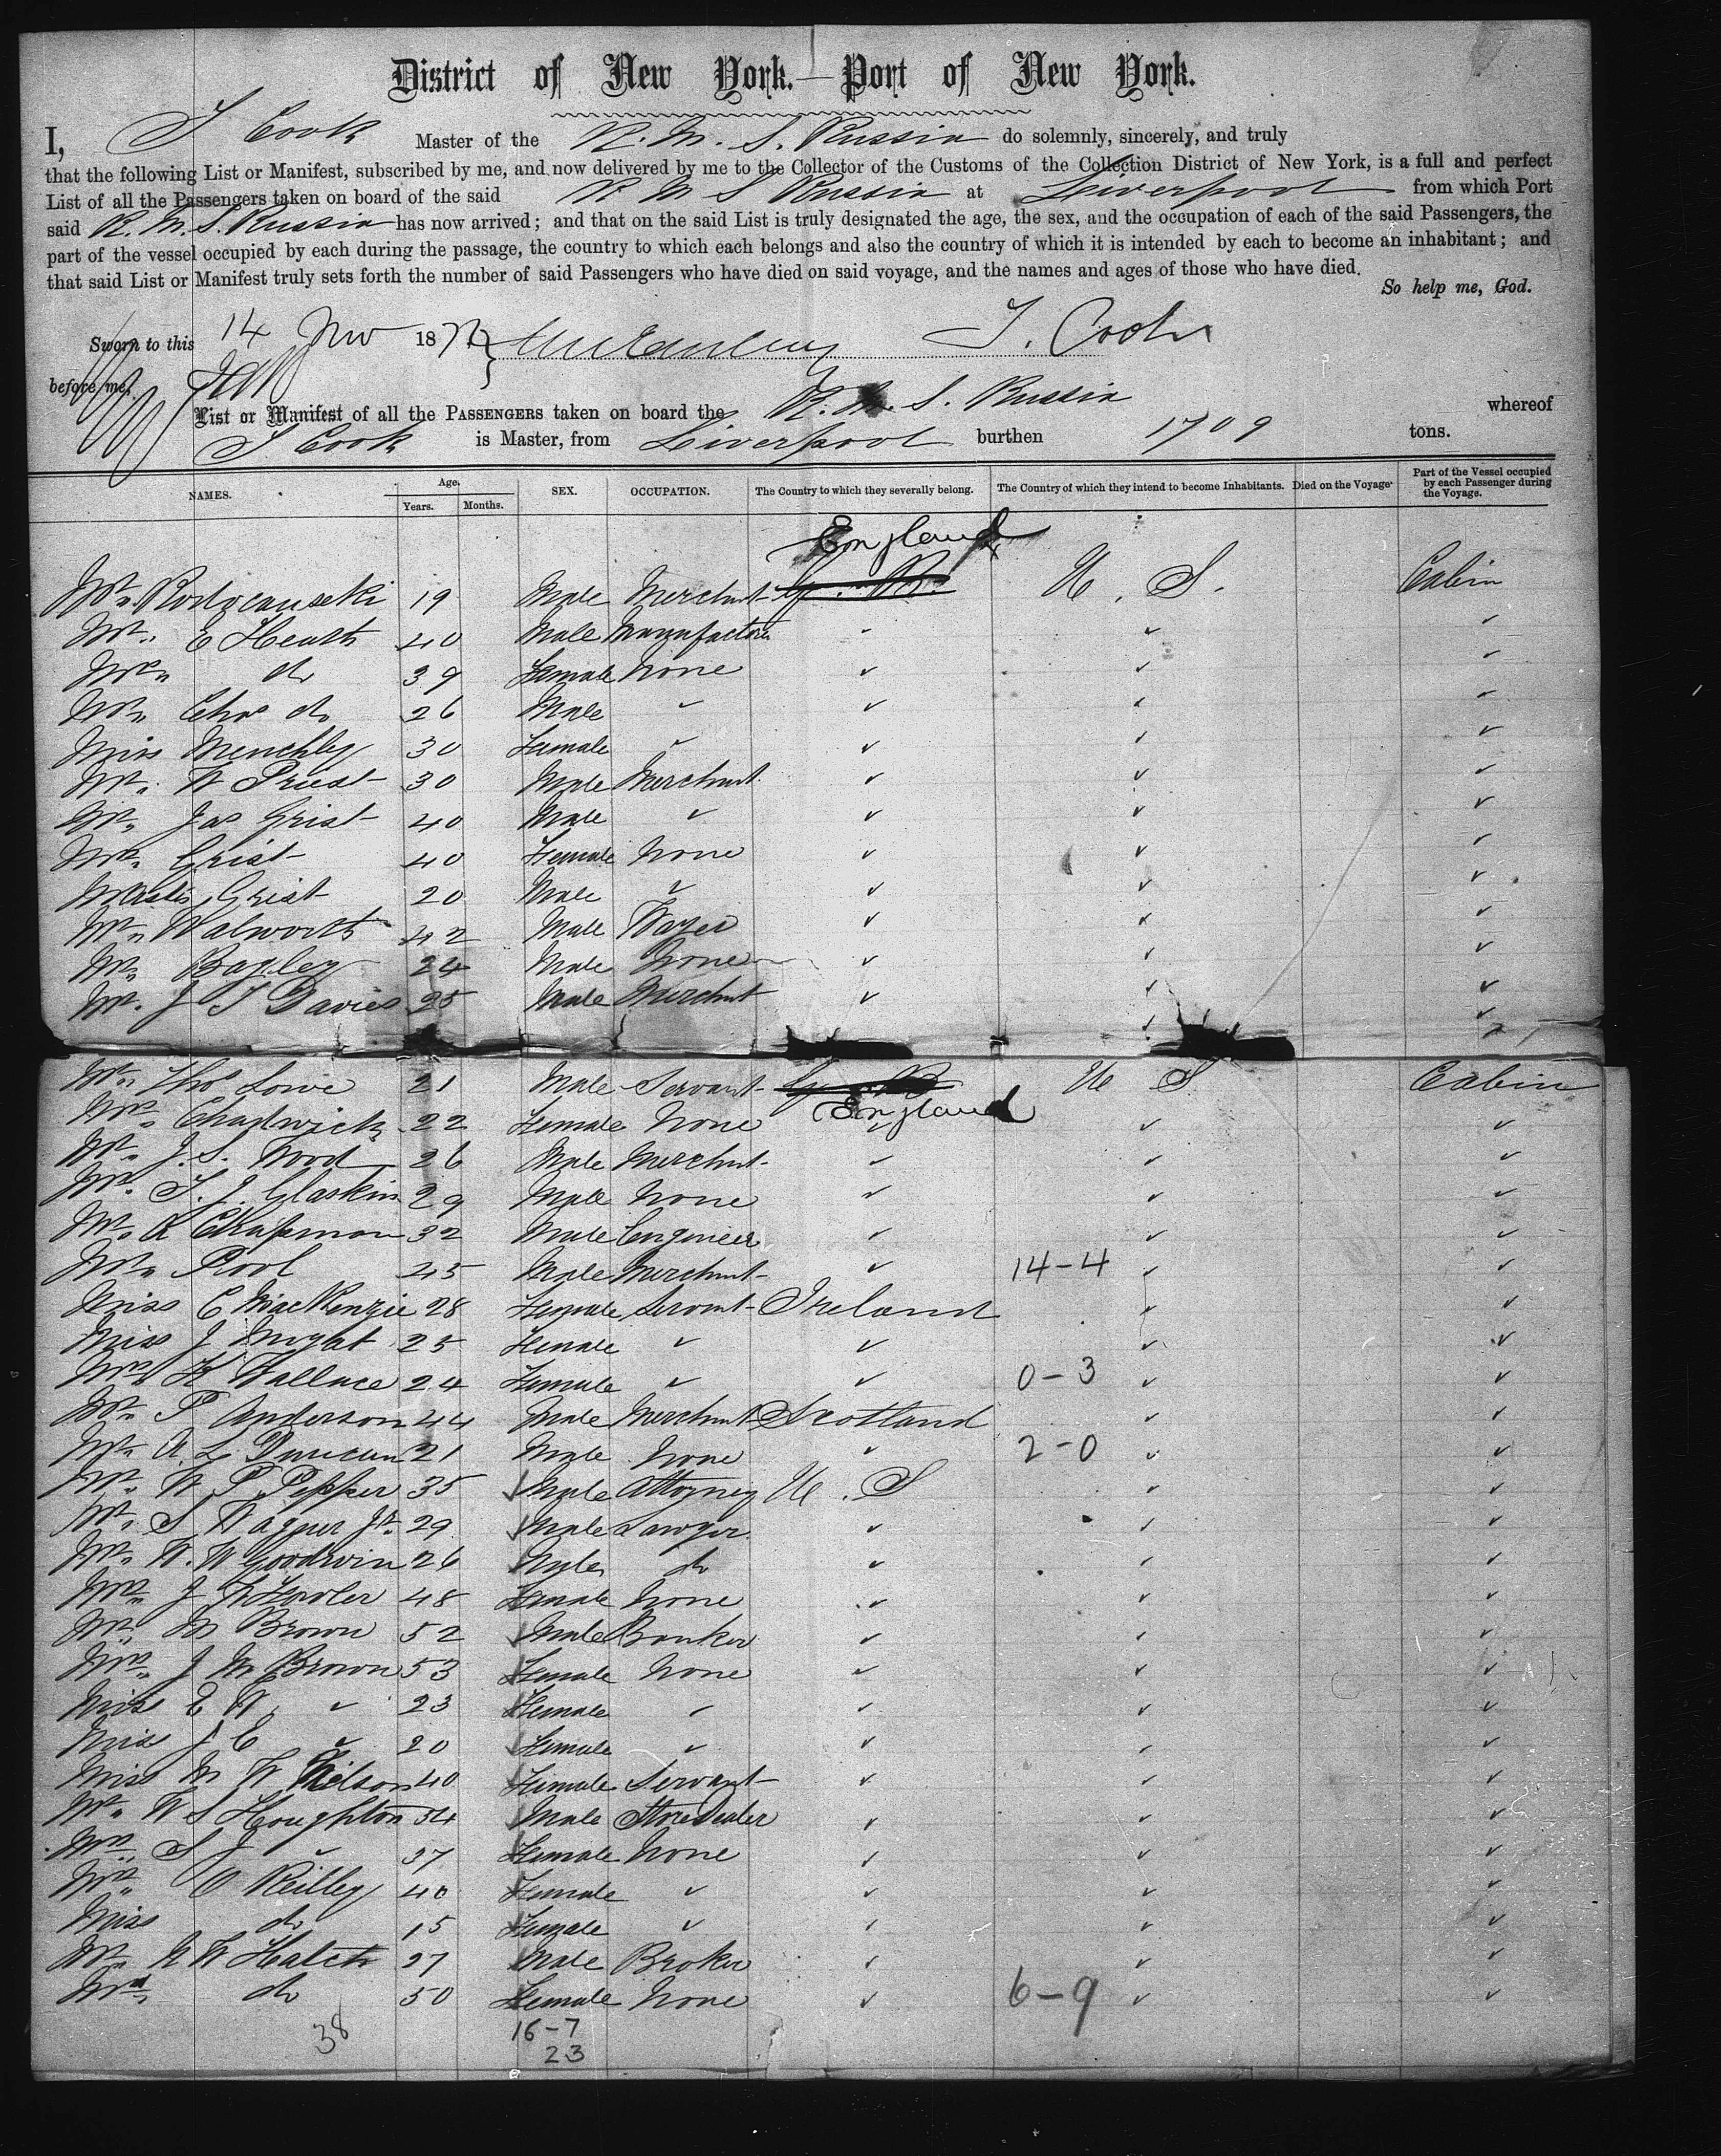 District of New York.—Port of New York.
I, T Cook Master of the R. M. S. Russia do solemnly, sincerely, and truly
that the following List or Manifest, subscribed by me, and now delivered by me to the Collector of the Customs of the Collection District of New York, is a full and perfect
List of all the Passengers taken on board of the said R M S Russia at Liverpool from which Port
said R. M. S. Russia has now arrived; and that on the said List is truly designated the age, the sex, and the occupation of each of the said Passengers, the
part of the vessel occupied by each during the passage, the country to which each belongs and also the country of which it is intended by each to become an inhabitant; and
that said List or Manifest truly sets forth the number of said Passengers who have died on said voyage, and the names and ages of those who have died.
So help me, God.
Sworn to this 14 Nov 187 T. Cook
before me,
List or Manifest of all the PASSENGERS taken on board the R. M. S. Russia whereof
T Cook is Master, from Liverpool burthen 1709 tons.
NAMES. Age, Years. Months. SEX. OCCUPATION. The Country to which they severally belong. The Country of which they intend to become Inhabitants. Died on the Voyage. Part of the Vessel occupied by each Passenger during the Voyage.
England
Mr. 19 Male Merchant G. B. U. S. Cabin
Mr. E Heath 40 Male Manufacturer ✓ ✓ ✓
Mrs do 39 Female None ✓ ✓ ✓
Mr. Chas do 26 Male ✓ ✓ ✓ ✓
Miss Menchley 30 Female ✓ ✓ ✓ ✓
Mr. W Priest 30 Male Merchant ✓ ✓ ✓
Mr. Jas Grist 40 Male ✓ ✓ ✓ ✓
Mrs. Grist 40 Female None ✓ ✓ ✓
Master Grist 20 Male ✓ ✓ ✓ ✓
Mr. Walworth 42 Male ✓ ✓ ✓
Mr. Bagley 24 Male None ✓ ✓ ✓
Mr. J T Davies 25 Male Merchant ✓ ✓ ✓
Mr. Thos Lowe 21 Male Servant G B U S Cabin
England
Mrs. Chadwick 22 Female None ✓ ✓ ✓
Mr. J. S. Wood 26 Male Merchant ✓ ✓ ✓
Mr. T. J. Glaskin 29 Male None ✓ ✓ ✓
Mr. R Chapman 32 Male Engineer ✓ ✓ ✓
Mr. Pool 45 Male Merchant ✓ 14-4 ✓ ✓
Miss C MacKenzie 28 Female Servant Ireland ✓ ✓
Miss J 25 Female ✓ ✓ ✓ ✓
Mrs H Wallace 24 Female ✓ ✓ 0-3 ✓ ✓
Mr. P Anderson 44 Male Merchant Scotland ✓ ✓
Mr. A. L. Duncan 21 Male None ✓ 2-0 ✓ ✓
Mr. W P Pepper 35 Male Attorney U. S ✓ ✓
Mr. S Wagner Jr. 29 Male Lawyer ✓ ✓ ✓
Mr. W. W Goodwin 26 Male do ✓ ✓ ✓
Mrs. J 48 Female None ✓ ✓ ✓
Mr. M Brown 52 Male Banker ✓ ✓ ✓
Mrs. J M Brown 53 Female None ✓ ✓ ✓
Miss E W. ✓ 23 Female ✓ ✓ ✓ ✓
Miss J C ✓ 20 Female ✓ ✓ ✓ ✓
Miss M W Wilson 40 Female Servant ✓ ✓ ✓
Mr. W S Houghton 54 Male Store Dealer ✓ ✓ ✓
Mrs. S J ✓ 37 Female None ✓ ✓ ✓
Mrs. O Reilley 40 Female ✓ ✓ ✓ ✓
Miss do 15 Female ✓ ✓ ✓ ✓
Mr. N W Hatch 27 Male Broker ✓ ✓ ✓
Mrs. do 50 Female None ✓ 6-9 ✓ ✓
38 16-7
23